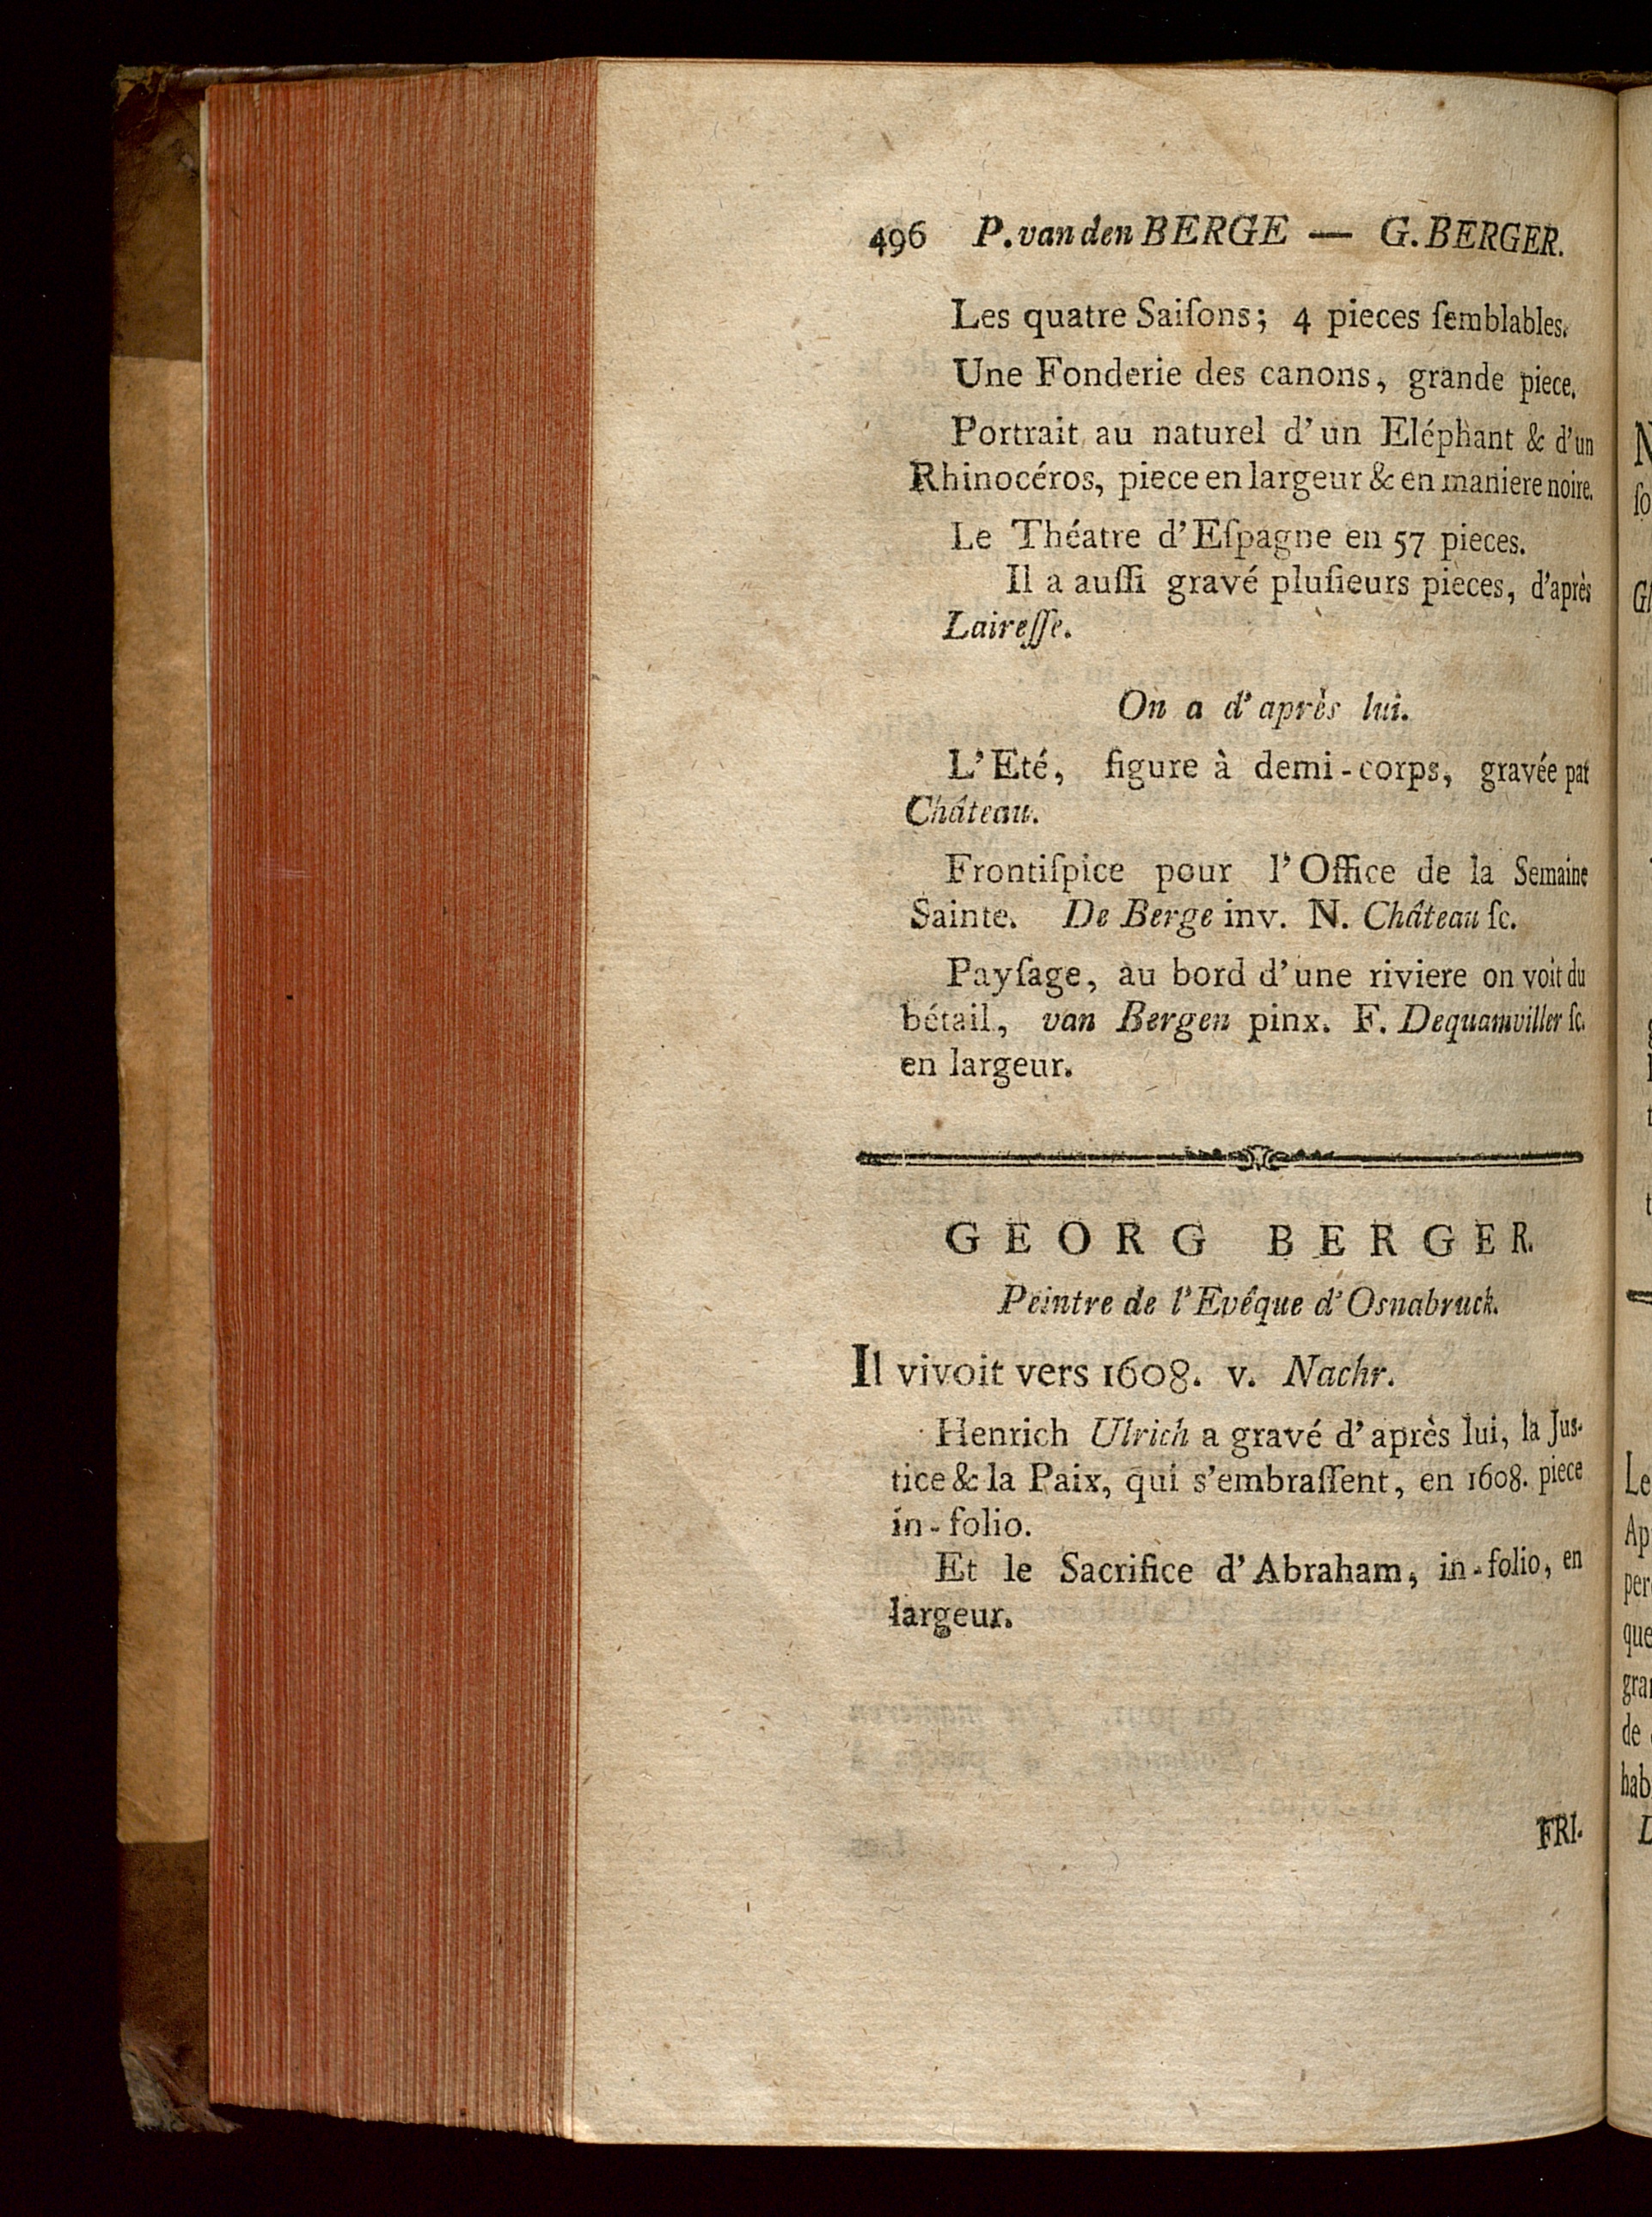 496 P. van den BERGE — G. BERGER.
Les quatre Saiſons; 4 pieces ſemblables.
Une Fonderie des canons, grande piece.
Portrait au naturel d'un Eléphant & d'un
Rhinocéros, piece en largeur & en maniere noire.
Le Théatre d'Eſpagne en 57 pieces.
Il a auſſi gravé pluſieurs pièces, d'après
Laireſſe.
On a d'après lui.
L'Eté, figure à demi-corps, gravée par
Château.
Frontiſpice pour l'Office de la Semaine
Sainte. De Berge inv. N. Château ſc.
Payſage, au bord d'une riviere on voit du
bétail, van Bergen pinx. F. Dequamviller ſc.
en largeur.
GEORG BERGER.
Peintre de l'Evêque d'Osnabruck.
Il vivoit vers 1608. v. Nachr.
Henrich Ulrich a gravé d'après lui, la Jus-
tice & la Paix, qui s'embraſſent, en 1608. piece
in-folio.
Et le Sacrifice d'Abraham, in-folio, en
largeur.
FRI-